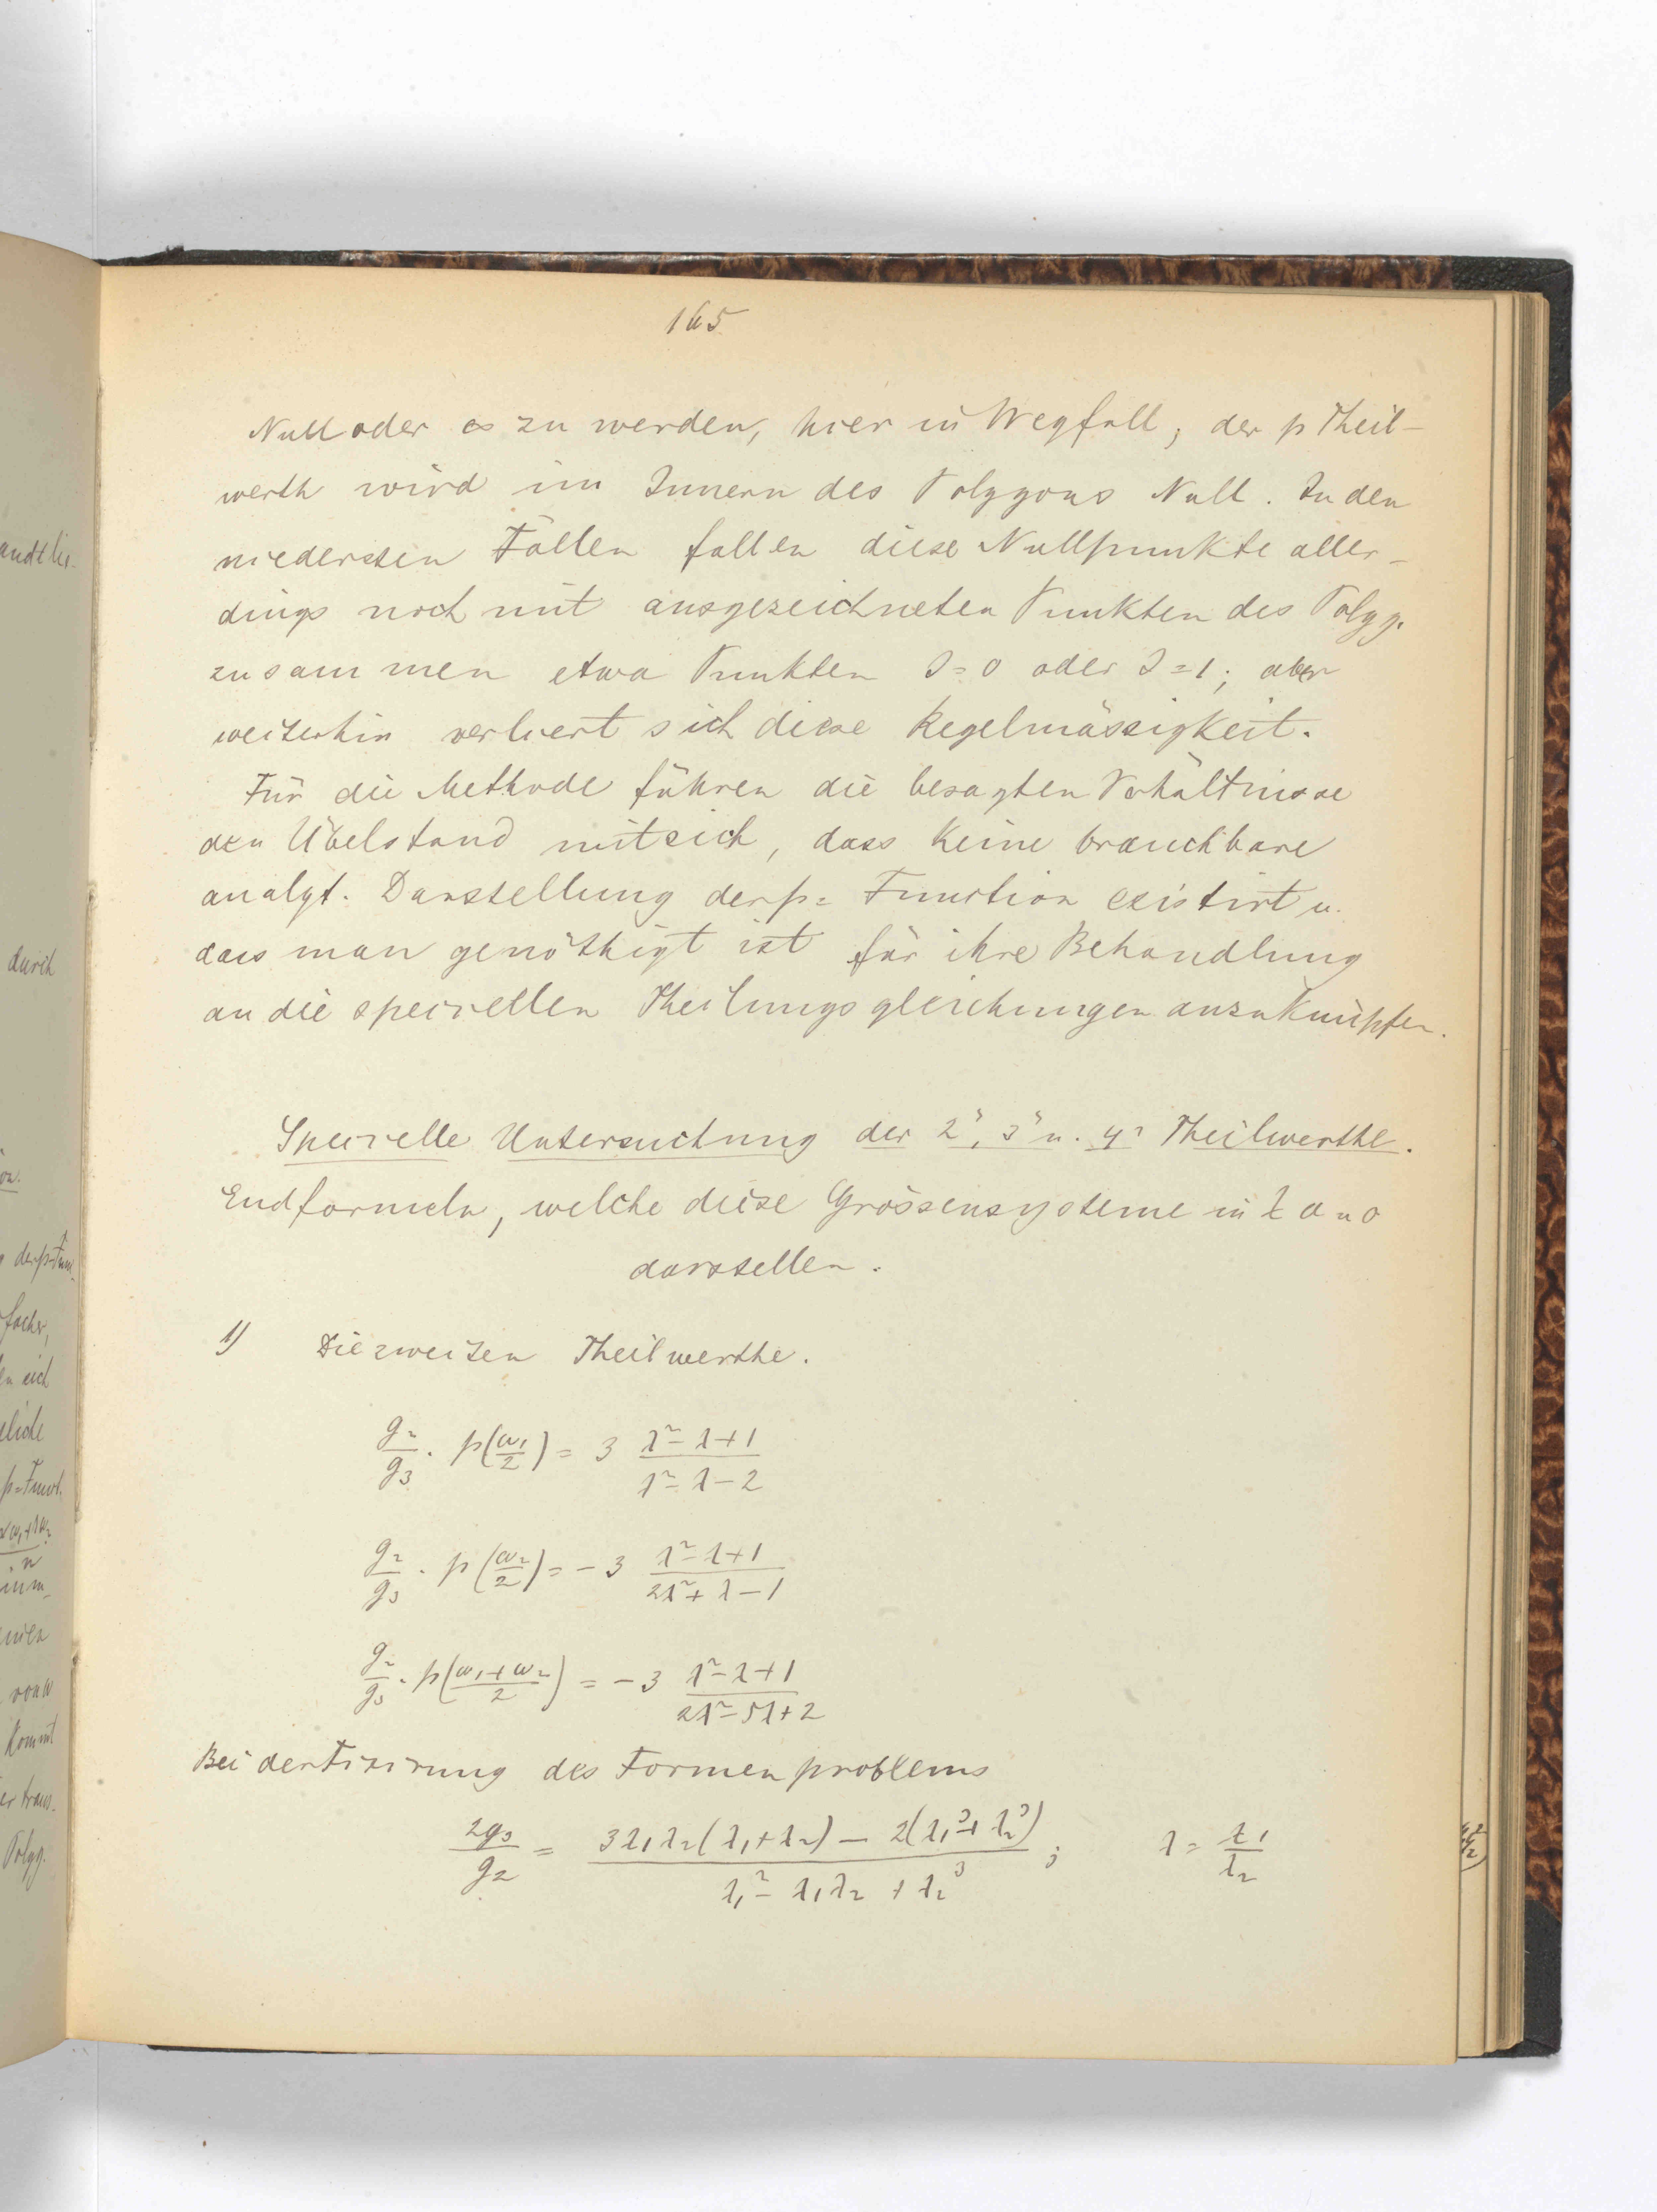 165
Null oder ∞ zu werden, hier in Wegfall; der p Theil-
werth wird im Innern des Polygons Null. In den
niedersten Fällen fallen diese Nullpunkte aller-
dings noch mit ausgezeichneten Punkten des Polyg.
zusammen etwa Punkten J=0 oder J=1; aber
weiterhin verliert sich diese Regelmässigkeit.
Für die Methode führen die besagten Verhältnisse
den Übelstand mit sich, dass keine brauchbare
analyt. Darstellung der p= Function existirt u.
dass man genöthigt ist für ihre Behandlung
an die speciellen Theilungsgleichungen anzuknüpfen.
Specielle Untersuchung der 2", 3" u. 4" Theilwerthe.
Endformeln, welche diese Grössensysteme in
darstellen.
1) Die zweiten Theilwerthe.
g₂/g₃ · p(ω₁/2) = 3 (λ²-λ+1)/(λ²-λ-2)
g₂/g₃ · p(ω₂/2) = -3 (λ²-λ+1)/(2λ²+λ-1)
g₂/g₃ · p((ω₁+ω₂)/2) = -3 (λ²-λ+1)/(2λ²-5λ+2)
Bei der Fixirung des Formenproblems
2g₃/g₂ = (3λ₁λ₂(λ₁+λ₂) - 2(λ₁³+λ₂³))/(λ₁²-λ₁λ₂+λ₂³); λ = λ₁/λ₂
durch
facher,
p=Funct.
kommt
Polyg.